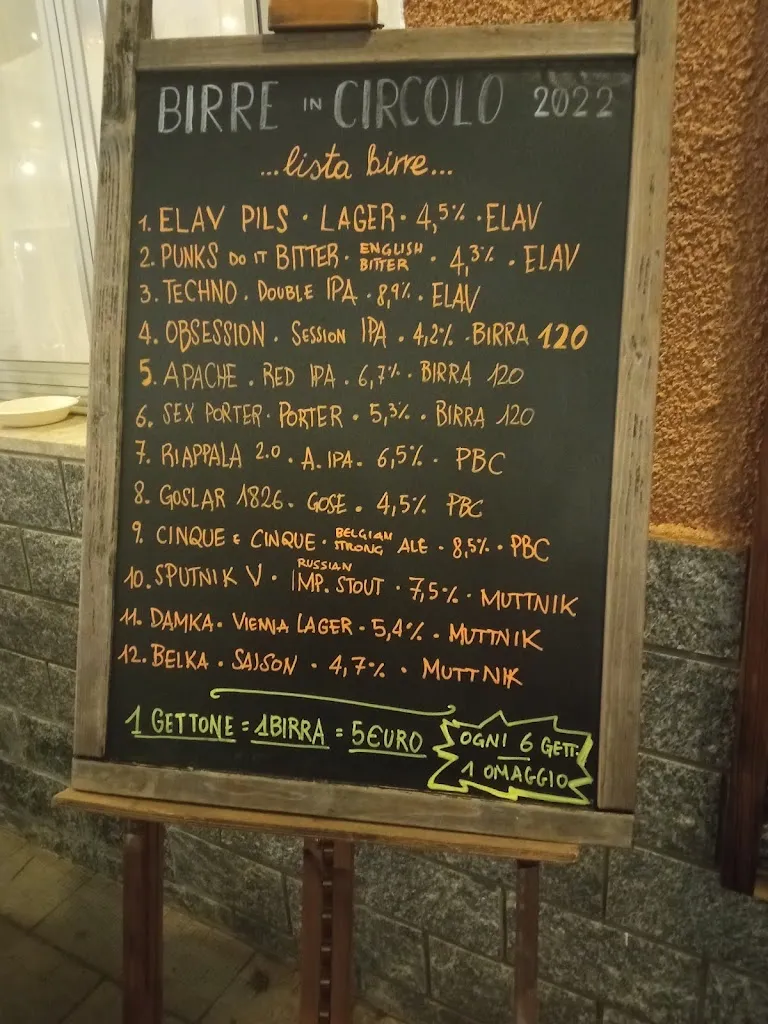 BIRRE IN CIRCOLO 2022
...lista birre...
1. ELAV PILS · LAGER · 4,5% · ELAV
2. PUNKS DO IT BITTER · ENGLISH BITTER · 4,3% · ELAV
3. TECHNO · DOUBLE IPA · 8,9% · ELAV
4. OBSESSION · SESSION IPA · 4,2% · BIRRA 120
5. APACHE · RED IPA · 6,7% · BIRRA 120
6. SEX PORTER · PORTER · 5,3% · BIRRA 120
7. RIAPPALA 2.0 · A. IPA · 6,5% · PBC
8. GOSLAR 1826 · GOSE · 4,5% PBC
9. CINQUE E CINQUE · BELGIAN STRONG ALE · 8,5% · PBC
10. SPUTNIK V · RUSSIAN IMP. STOUT · 7,5% · MUTTNIK
11. DAMKA · VIENNA LAGER · 5,4% · MUTTNIK
12. BELKA · SAISON · 4,7% · MUTTNIK
1 GETTONE = 1 BIRRA = 5 EURO
OGNI 6 GETT.
1 OMAGGIO